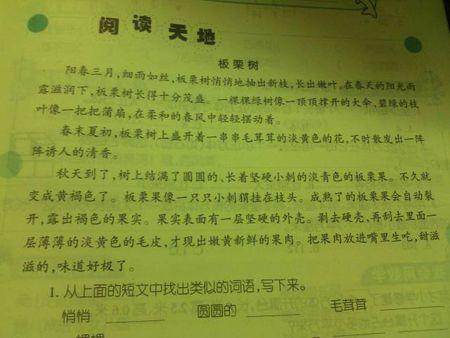 阅读天地
板栗树
阳春三月,细雨如丝,板栗树悄悄地抽出新枝,长出嫩叶。在春天的阳光雨
露滋润下,板栗树长得十分茂盛。一棵棵绿树像一顶顶撑开的大伞,碧绿的枝
叶像一把把蒲扇,在柔和的春风中轻轻摆动着。
春末夏初,板栗树上盛开着一串串毛茸茸的淡黄色的花,不时散发出一阵
阵诱人的清香。
秋天到了,树上结满了圆圆的,长着坚硬小刺的淡青色的板栗果。不久就
变成黄褐色了。板栗果像一只只小刺猬挂在枝头。成熟了的板栗果会自动裂
开,露出褐色的果实。果实表面有一层坚硬的外壳。剥去硬壳,再刮去里面一
层薄薄的淡黄色的毛皮,才现出嫩黄新鲜的果肉。把果肉放进嘴里生吃,甜滋
滋的,味道好极了。
1. 从上面的短文中找出类似的词语,写下来。
悄悄 圆圆的 毛茸茸